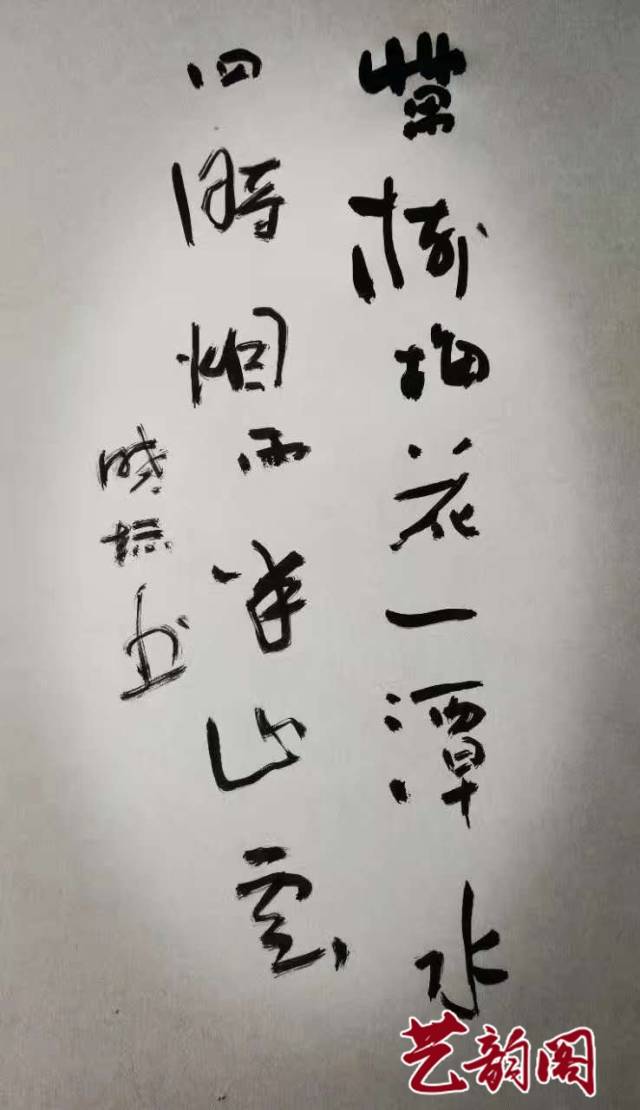 万树梅花一潭水
四时烟雨半山云
晓林书
艺韵阁